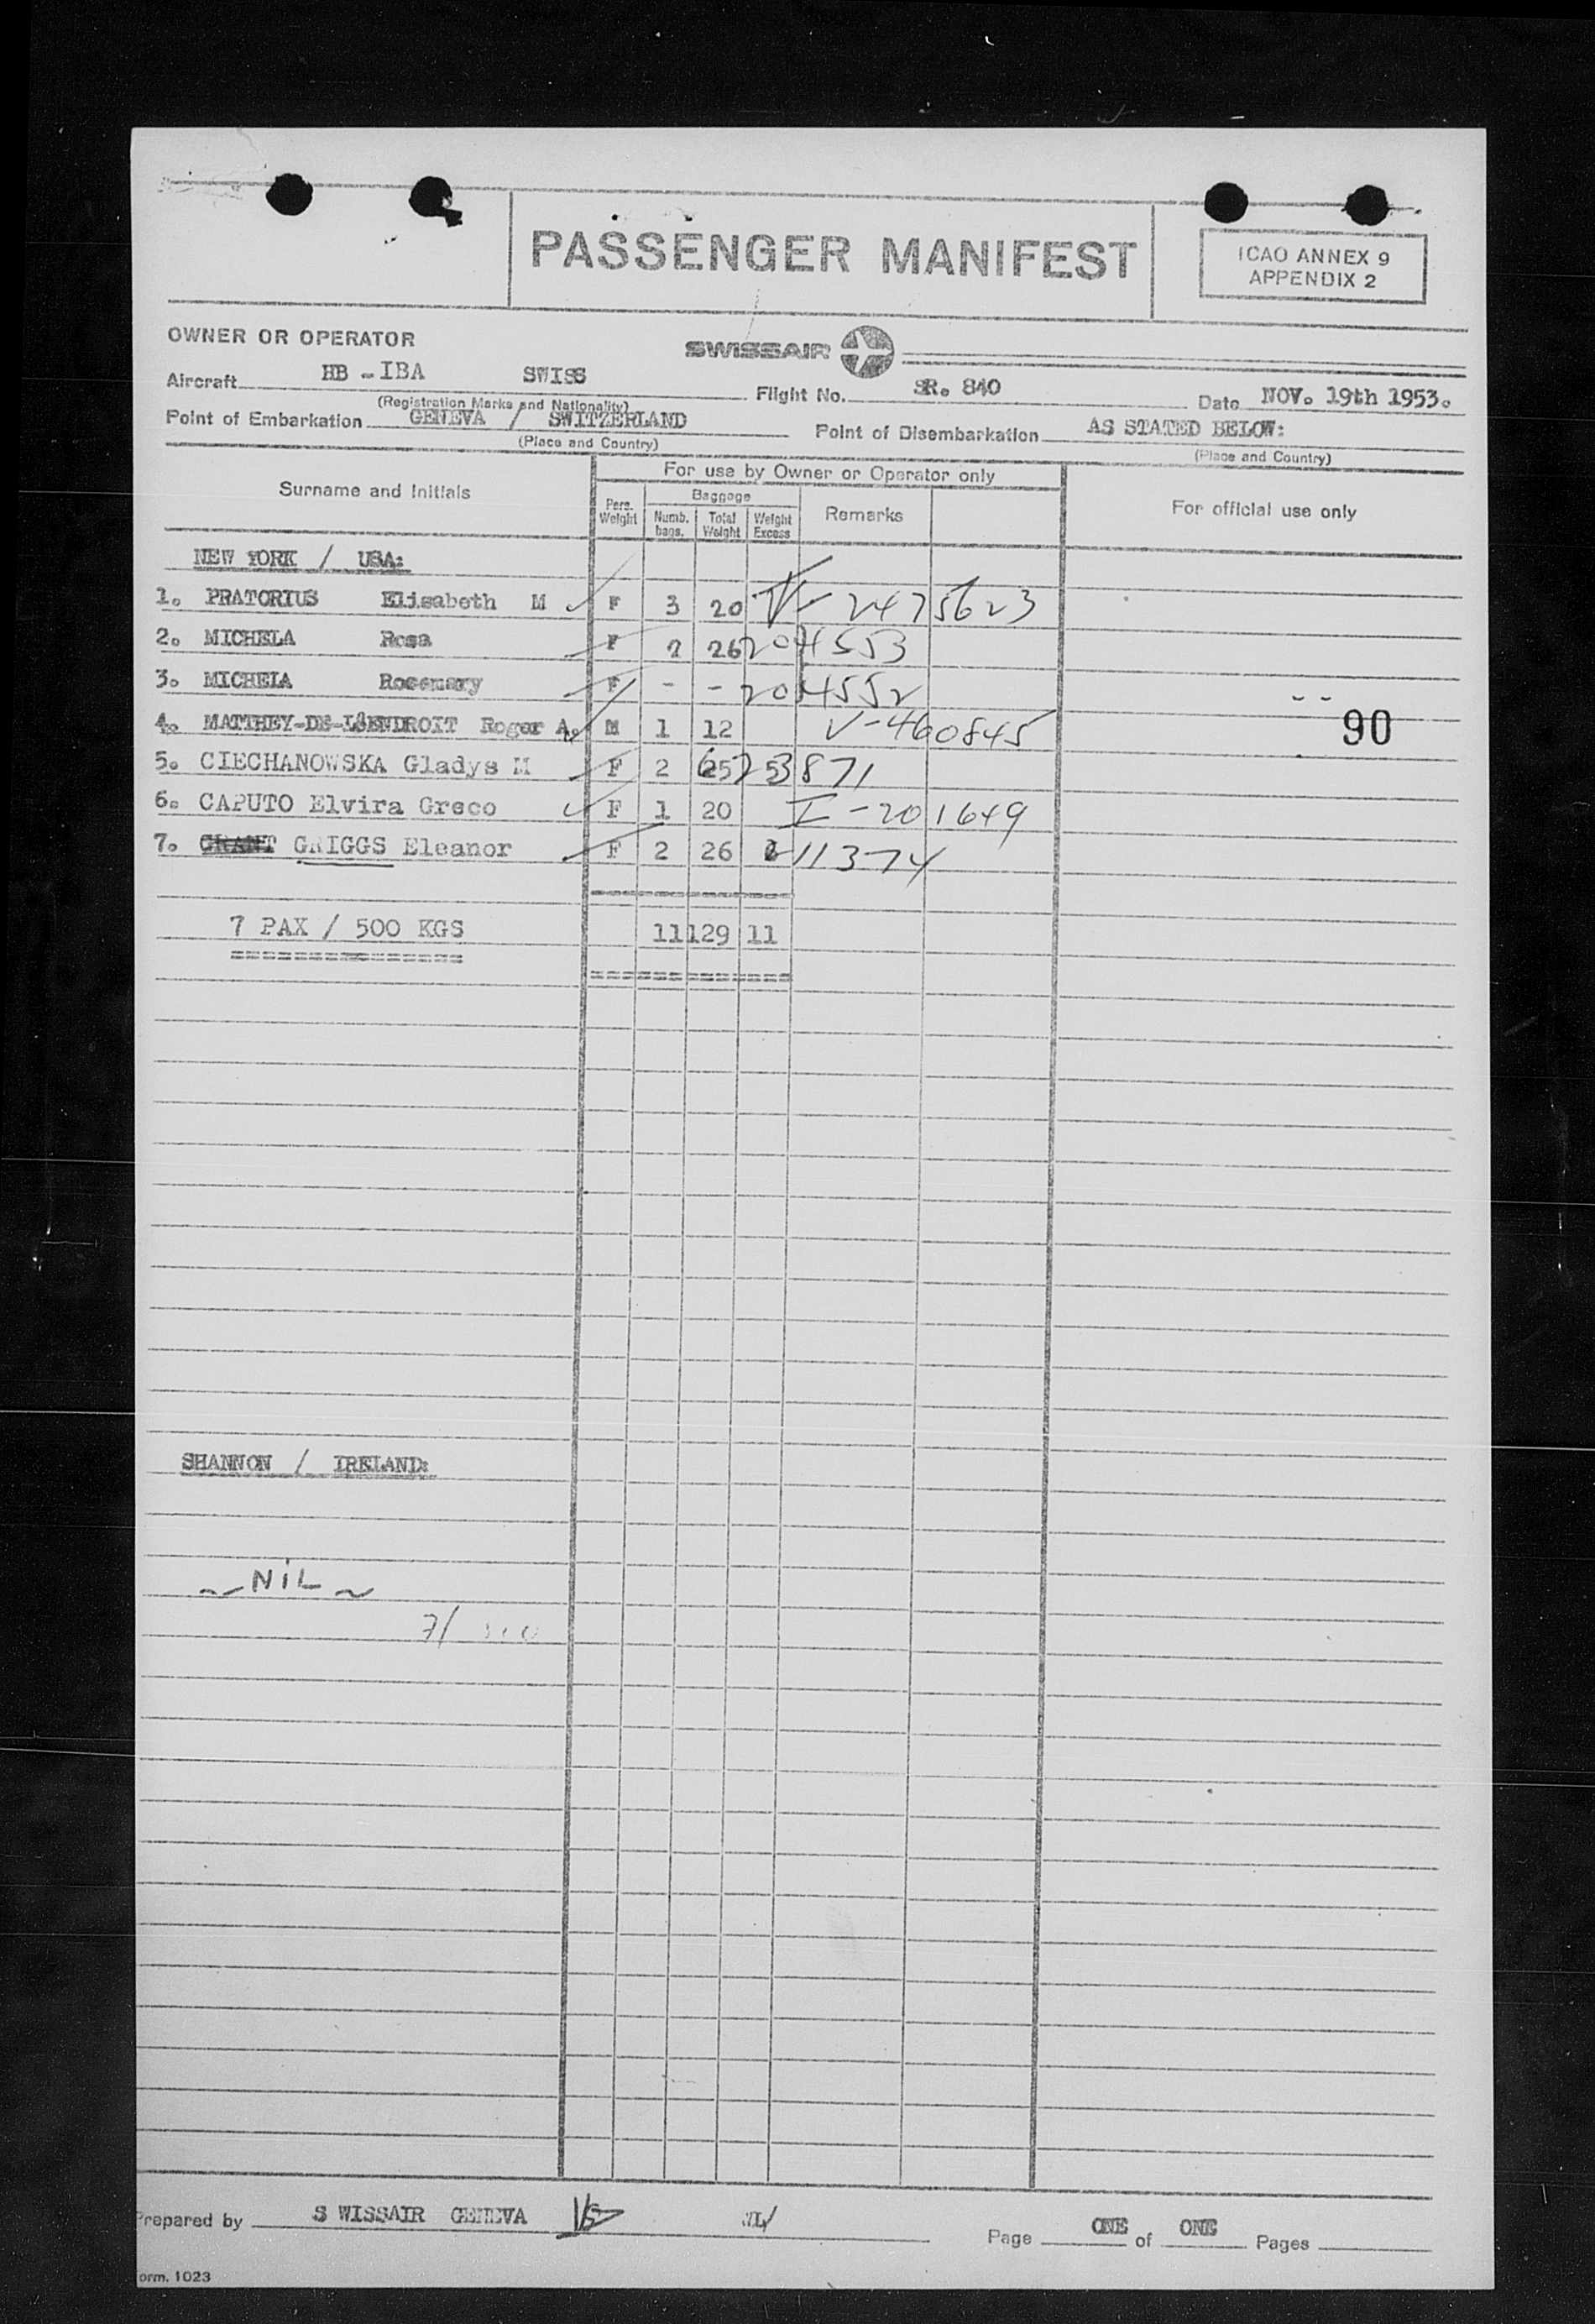 PASSENGER MANIFEST
ICAO ANNEX 9
APPENDIX 2
OWNER OR OPERATOR
SWISSAIR
Aircraft HB - IBA SWISS Flight No. SR. 840 Date NOV. 19th 1953.
(Registration Marks and Nationality)
Point of Embarkation GENEVA / SWITZERLAND Point of Disembarkation AS STATED BELOW:
(Place and Country) (Place and Country)
Surname and Initials For use by Owner or Operator only For official use only
Pers. Weight Baggage Numb. bags. Total Weight Weight Excess Remarks
NEW YORK / USA:
1. PRATORIUS Elisabeth M F 3 20 V-2475623
2. MICHELA Rosa F 2 26 204553
3. MICHELA Rosemary F - - 204552
4. MATTHEY-DE-L'ENDROIT Roger A. M 1 12 V-460845
90
5. CIECHANOWSKA Gladys M F 2 25 3871
6. CAPUTO Elvira Greco F 1 20 I-201649
7. GRANT GRIGGS Eleanor F 2 26 11374
7 PAX / 500 KGS 11 129 11
SHANNON / IRELAND:
~ NiL ~
7/
Prepared by S WISSAIR GENEVA Page ONE of ONE Pages
orm. 1023